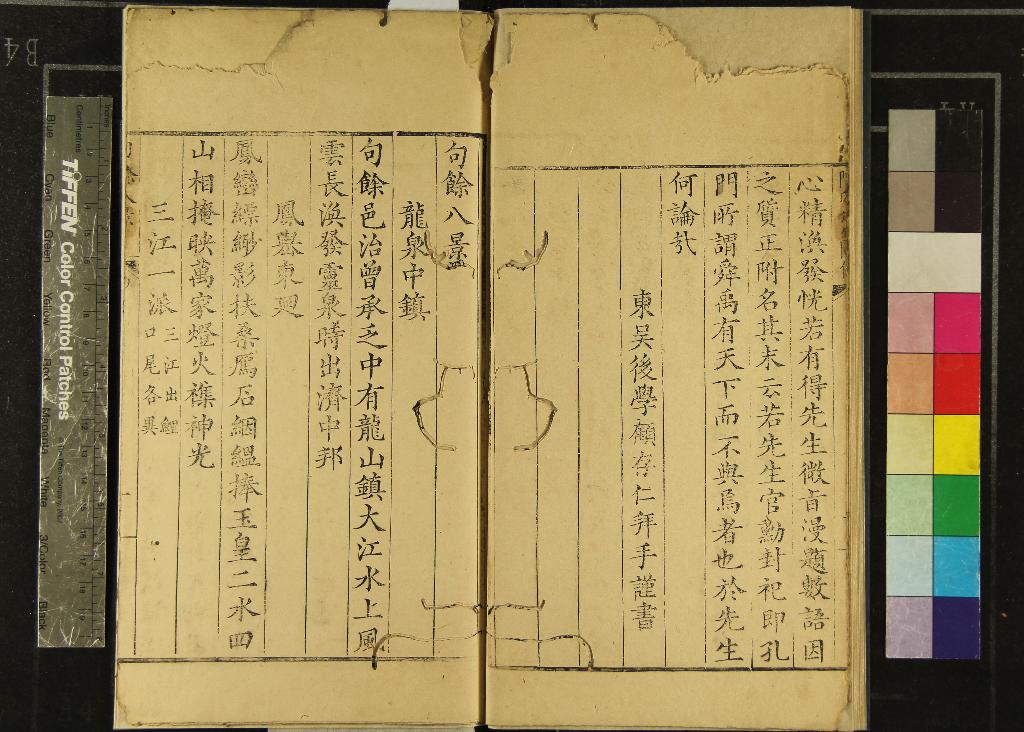 心精渙發恍若有得先生微旨漫題數語因
之質正附名其末云若先生官勳封祀即孔
門所謂舜禹有天下而不與焉者也於先生
何論哉
東吴後學顧存仁拜手謹書
句餘八景
龍泉中鎮
句餘邑治曾承乏中有龍山鎮大江水上風
雲長渙發靈泉時出濟中邦
鳳舉東廵
鳳巒縹緲影扶桑鴈石絪緼捧玉皇二水四
山相掩映萬家燈火襍神光
三江一派三江出鯉
口尾各異
TIFFEN Color Control Patches
Blue
Cyan
Green
Yellow
Red
Magenta
White
3/Color
Black
Centimetres
Inches
B4